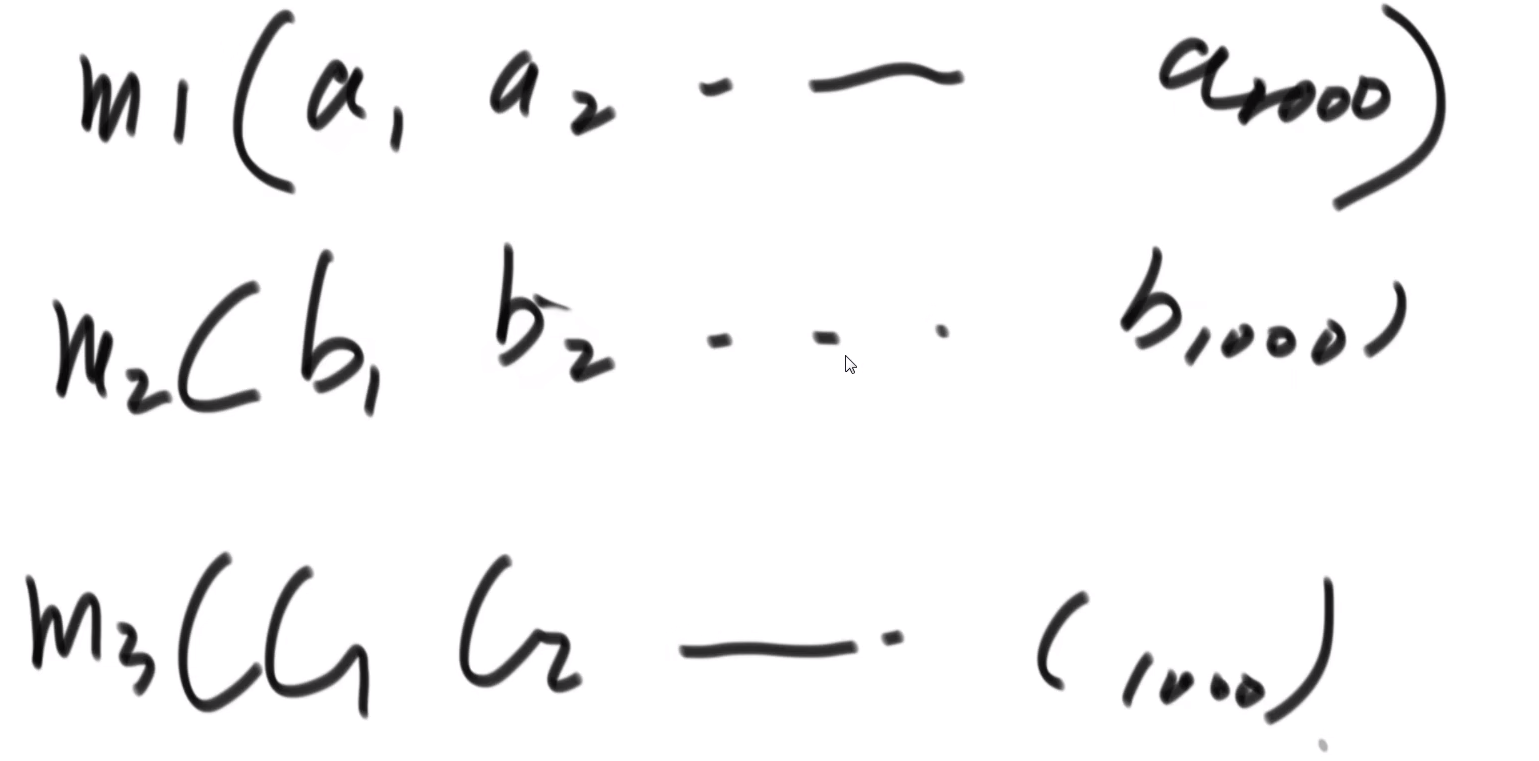 m1 (a1 a2 - — a1000)
m2 (b1 b2 - - · b1000)
m3 (C1 C2 — · C1000)